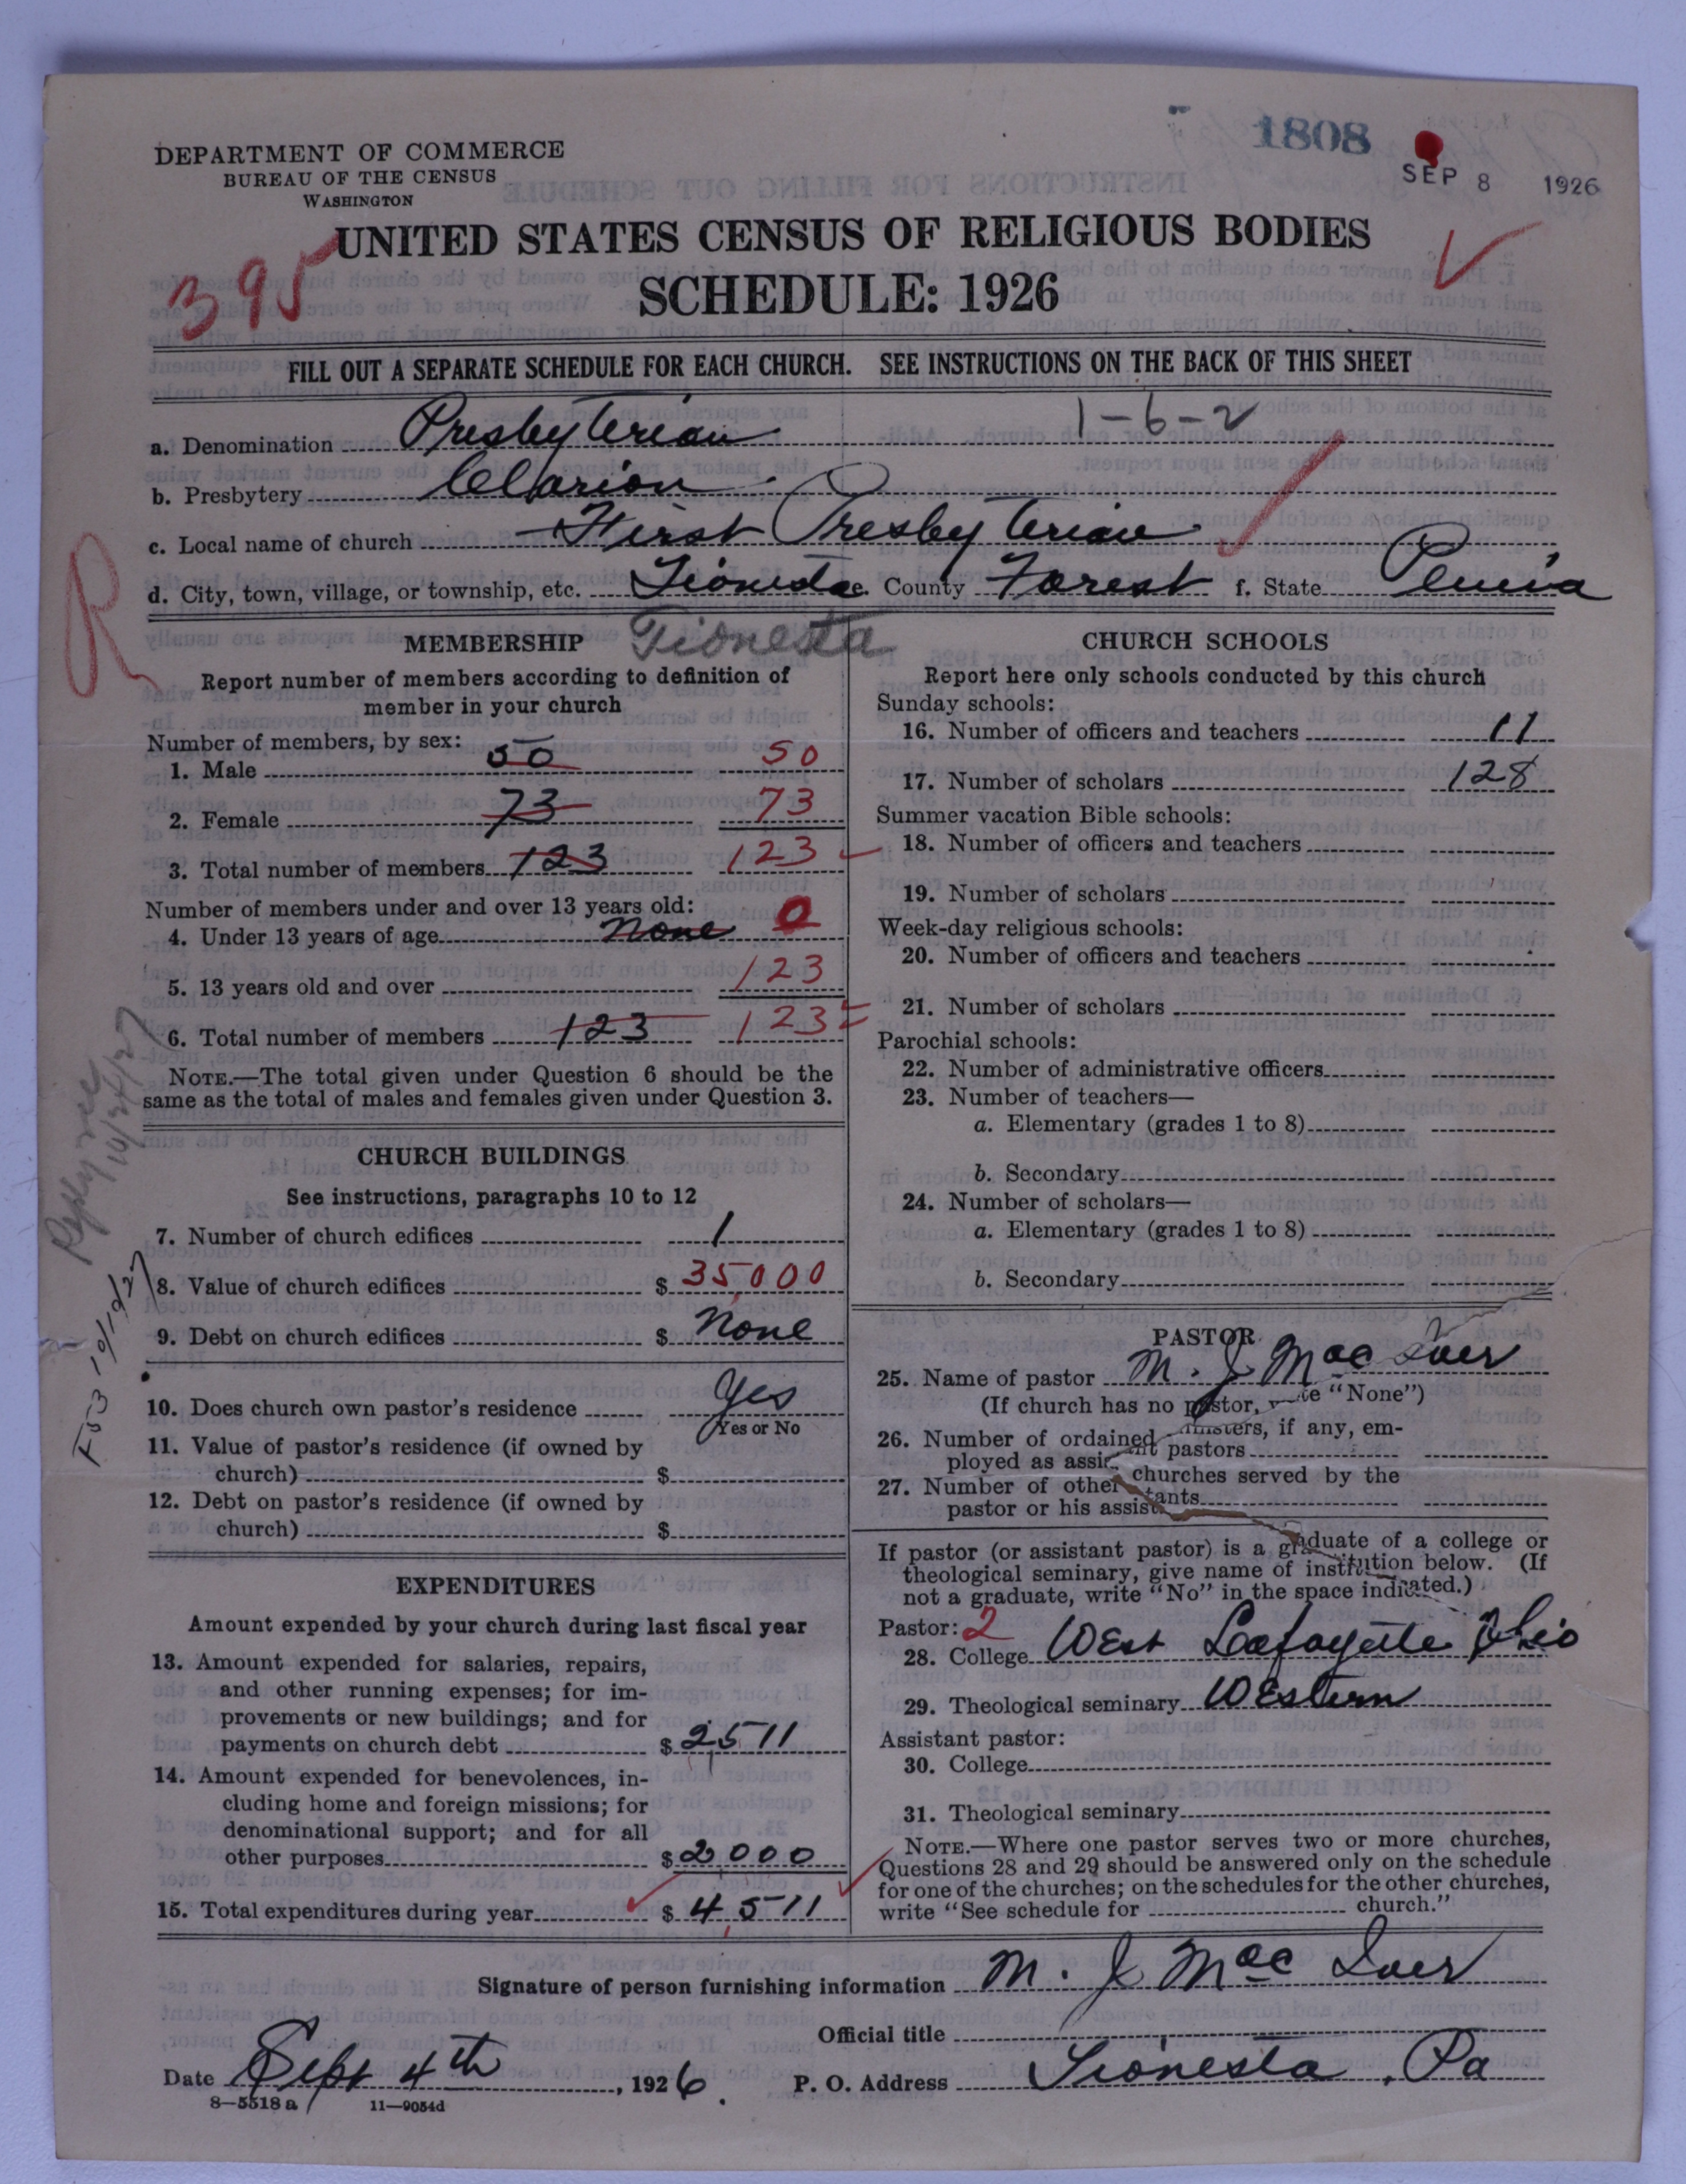 1808
SEP 8 1926
DEPARTMENT OF COMMERCE
BUREAU OF THE CENSUS
WASHINGTON
UNITED STATES CENSUS OF RELIGIOUS BODIES
395
SCHEDULE: 1926
FILL OUT A SEPARATE SCHEDULE FOR EACH CHURCH. SEE INSTRUCTIONS ON THE BACK OF THIS SHEET
1-6-2
a. Denomination Presbyterian
b. Presbytery Clarion
c. Local name of church First Presbyterian
d. City, town, village, or township, etc. Tionesta e. County Forest f. State Penna
R
Tionesta
MEMBERSHIP
Report number of members according to definition of
member in your church
Number of members, by sex:
1. Male 50 50
2. Female 73 73
3. Total number of members 123 123
Number of members under and over 13 years old:
4. Under 13 years of age None 0
5. 13 years old and over 123
6. Total number of members 123 123
NOTE.—The total given under Question 6 should be the
same as the total of males and females given under Question 3.
Reply rec 10/24/27
F53 10/19/27
CHURCH BUILDINGS
See instructions, paragraphs 10 to 12
7. Number of church edifices 1
8. Value of church edifices $ 35,000
9. Debt on church edifices $ None
10. Does church own pastor's residence Yes
Yes or No
11. Value of pastor's residence (if owned by
church) $
12. Debt on pastor's residence (if owned by
church) $
EXPENDITURES
Amount expended by your church during last fiscal year
13. Amount expended for salaries, repairs,
and other running expenses; for im-
provements or new buildings; and for
payments on church debt $ 2,511
14. Amount expended for benevolences, in-
cluding home and foreign missions; for
denominational support; and for all
other purposes $ 2000
15. Total expenditures during year $ 4,511
CHURCH SCHOOLS
Report here only schools conducted by this church
Sunday schools:
16. Number of officers and teachers 11
17. Number of scholars 128
Summer vacation Bible schools:
18. Number of officers and teachers
19. Number of scholars
Week-day religious schools:
20. Number of officers and teachers
21. Number of scholars
Parochial schools:
22. Number of administrative officers
23. Number of teachers—
a. Elementary (grades 1 to 8)
b. Secondary
24. Number of scholars—
a. Elementary (grades 1 to 8)
b. Secondary
PASTOR
25. Name of pastor M. J. MacIver
(If church has no pastor, write "None")
26. Number of ordained ministers, if any, em-
ployed as assistant pastors
27. Number of other churches served by the
pastor or his assistants
If pastor (or assistant pastor) is a graduate of a college or
theological seminary, give name of institution below. (If
not a graduate, write "No" in the space indicated.)
Pastor: 2
28. College West Lafayette Ohio
29. Theological seminary Western
Assistant pastor:
30. College
31. Theological seminary
NOTE.—Where one pastor serves two or more churches,
Questions 28 and 29 should be answered only on the schedule
for one of the churches; on the schedules for the other churches,
write "See schedule for church."
Signature of person furnishing information M. J. MacIver
Official title
Date Sept 4th, 1926. P. O. Address Tionesta, Pa
8—5518 a 11—9054d